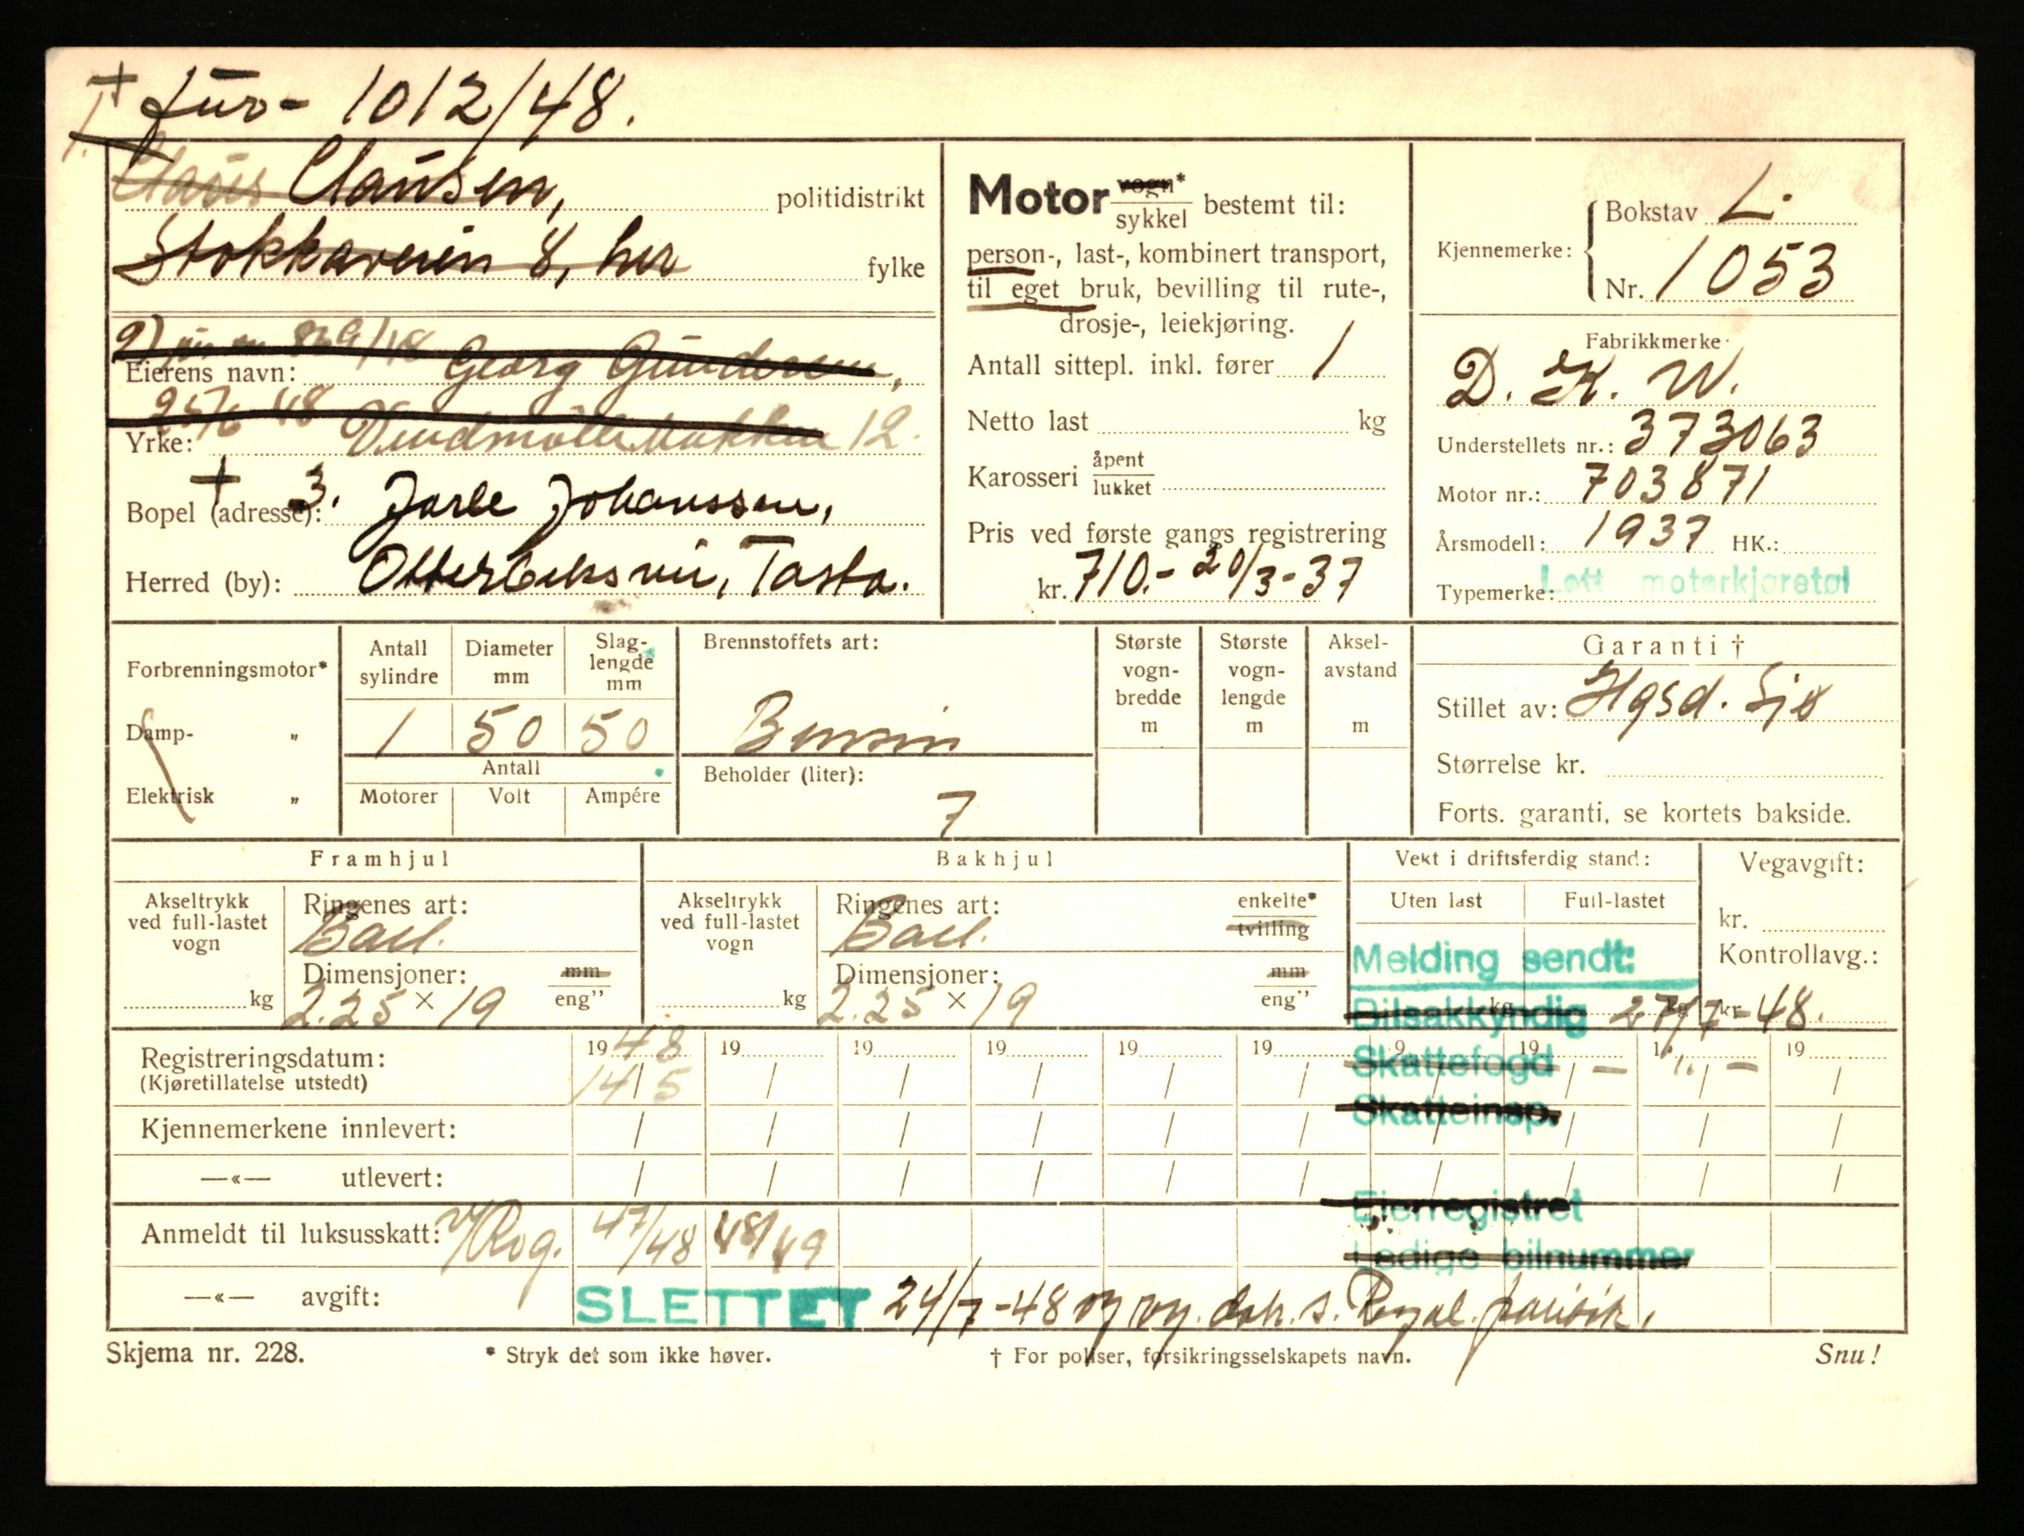 + Jur- 1012/48.
1. Claus Clausen, politidistrikt
Stokkaveien 8, her fylke
2) Georg Gundersen,
Eierens navn:
25/6 48 Vindmøllebakken 12.
Yrke:
+ 3. Jarle Johanssen,
Bopel (adresse):
Herred (by): Otterbeksvei, Tasta.
Motor vogn*
sykkel bestemt til:
person-, last-, kombinert transport,
til eget bruk, bevilling til rute-,
drosje-, leiekjøring.
Antall sittepl. inkl. fører 1
Netto last kg
Karosseri åpent
lukket
Pris ved første gangs registrering
kr. 710.- 20/3-37
Kjennemerke: Bokstav L.
Nr. 1053
Fabrikkmerke
D. K. W.
Understellets nr.: 373063
Motor nr.: 703871
Årsmodell: 1937 HK.:
Typemerke: Lett motorkjøretøi
Forbrenningsmotor*
Damp- „
Elektrisk „
Antall sylindre
Diameter mm
Slag-lengde mm
1 50 50
Antall
Motorer Volt Ampére
Brennstoffets art:
Bensin
Beholder (liter):
7
Største vogn-bredde m
Største vogn-lengde m
Aksel-avstand m
Garanti †
Stillet av: Hgsd. Sjø
Størrelse kr.
Forts. garanti, se kortets bakside.
Framhjul
Akseltrykk ved full-lastet vogn
kg
Ringenes art:
Ball.
Dimensjoner: mm
2.25 × 19 eng"
Bakhjul
Akseltrykk ved full-lastet vogn
kg
Ringenes art: enkelte*
Ball. tvilling
Dimensjoner: mm
2.25 × 19 eng"
Vekt i driftsferdig stand:
Uten last Full-lastet
kg kg
Vegavgift:
kr.
Kontrollavg.:
kr.
Melding sendt:
Bilsakkyndig 27/7-48.
Skattefogd — „ —
Skatteinsp.
Eierregistret
Ledige bilnummer
Registreringsdatum: 1948 19 19 19 19 19 19 19 19 19
(Kjøretillatelse utstedt) 14/5 / / / / / / / / /
Kjennemerkene innlevert: / / / / / / / / / /
—«— utlevert: / / / / / / / / / /
Anmeldt til luksusskatt: Rog. 47/48 48/49
—«— avgift: SLETTET 24/7-48
Skjema nr. 228. * Stryk det som ikke høver. † For poliser, forsikringsselskapets navn. Snu!